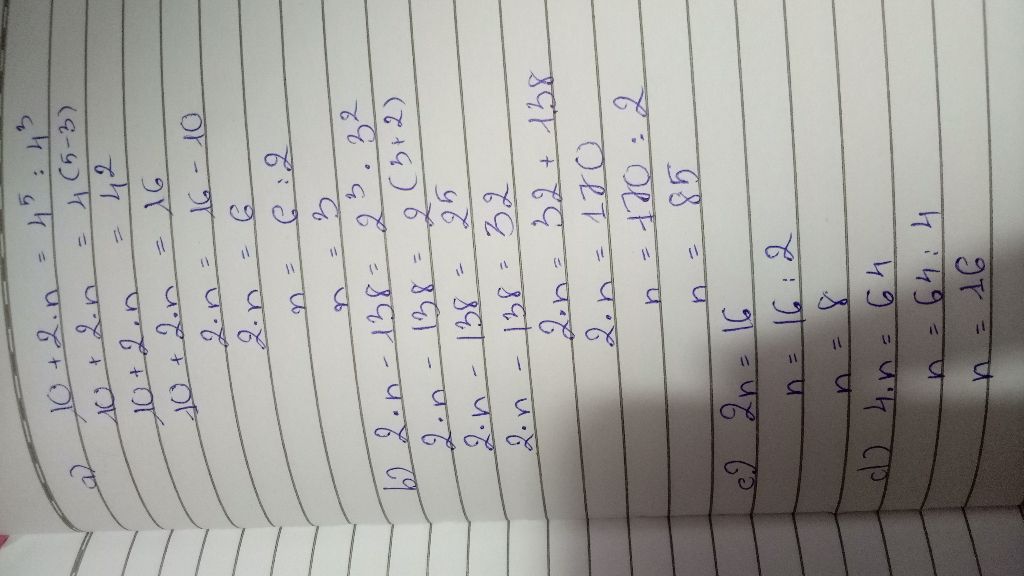 a) 10 + 2.n = 4⁵ : 4³
10 + 2.n = 4 (5-3)
10 + 2.n = 4²
10 + 2.n = 16
2.n = 16 - 10
2.n = 6
n = 6 : 2
n = 3
b) 2.n - 138 = 2³ . 3²
2.n - 138 = 2 (3+2)
2.n - 138 = 2⁵
2.n - 138 = 32
2.n = 32 + 138
2.n = 170
n = 170 : 2
n = 85
c) 2n = 16
n = 16 : 2
n = 8
d) 4.n = 64
n = 64 : 4
n = 16